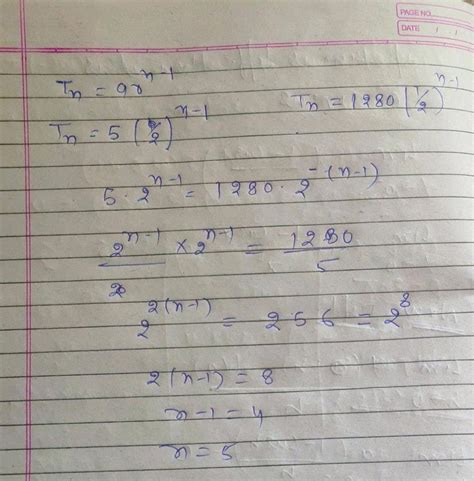 PAGE NO.
DATE / /
Tn = ar^(n-1)
Tn = 1280 (1/2)^(n-1)
Tn = 5 ( /2)^(n-1)
5 · 2^(n-1) = 1280 · 2^-(n-1)
2^(n-1) × 2^(n-1) = 1280/5
2^(2(n-1)) = 256 = 2^8
2(n-1) = 8
n-1 = 4
n = 5